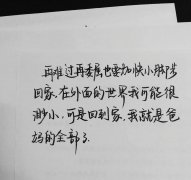 再难过再委屈也要加快小脚步
回家.在外面的世界我可能很
渺小.可是回到家.我就是爸
妈的全部了